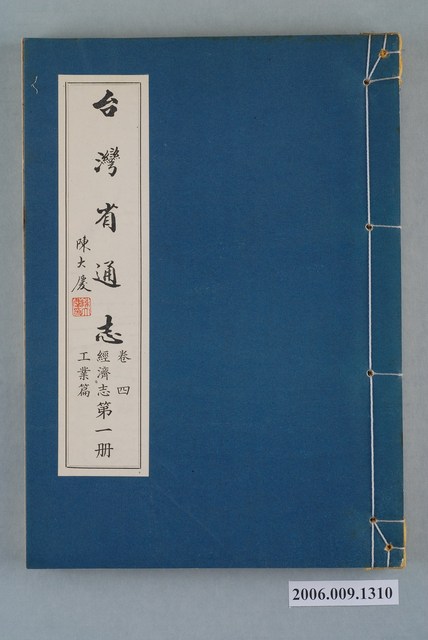 台灣省通志
陳大慶
卷四
經濟志第一册
工業篇
2006.009.1310